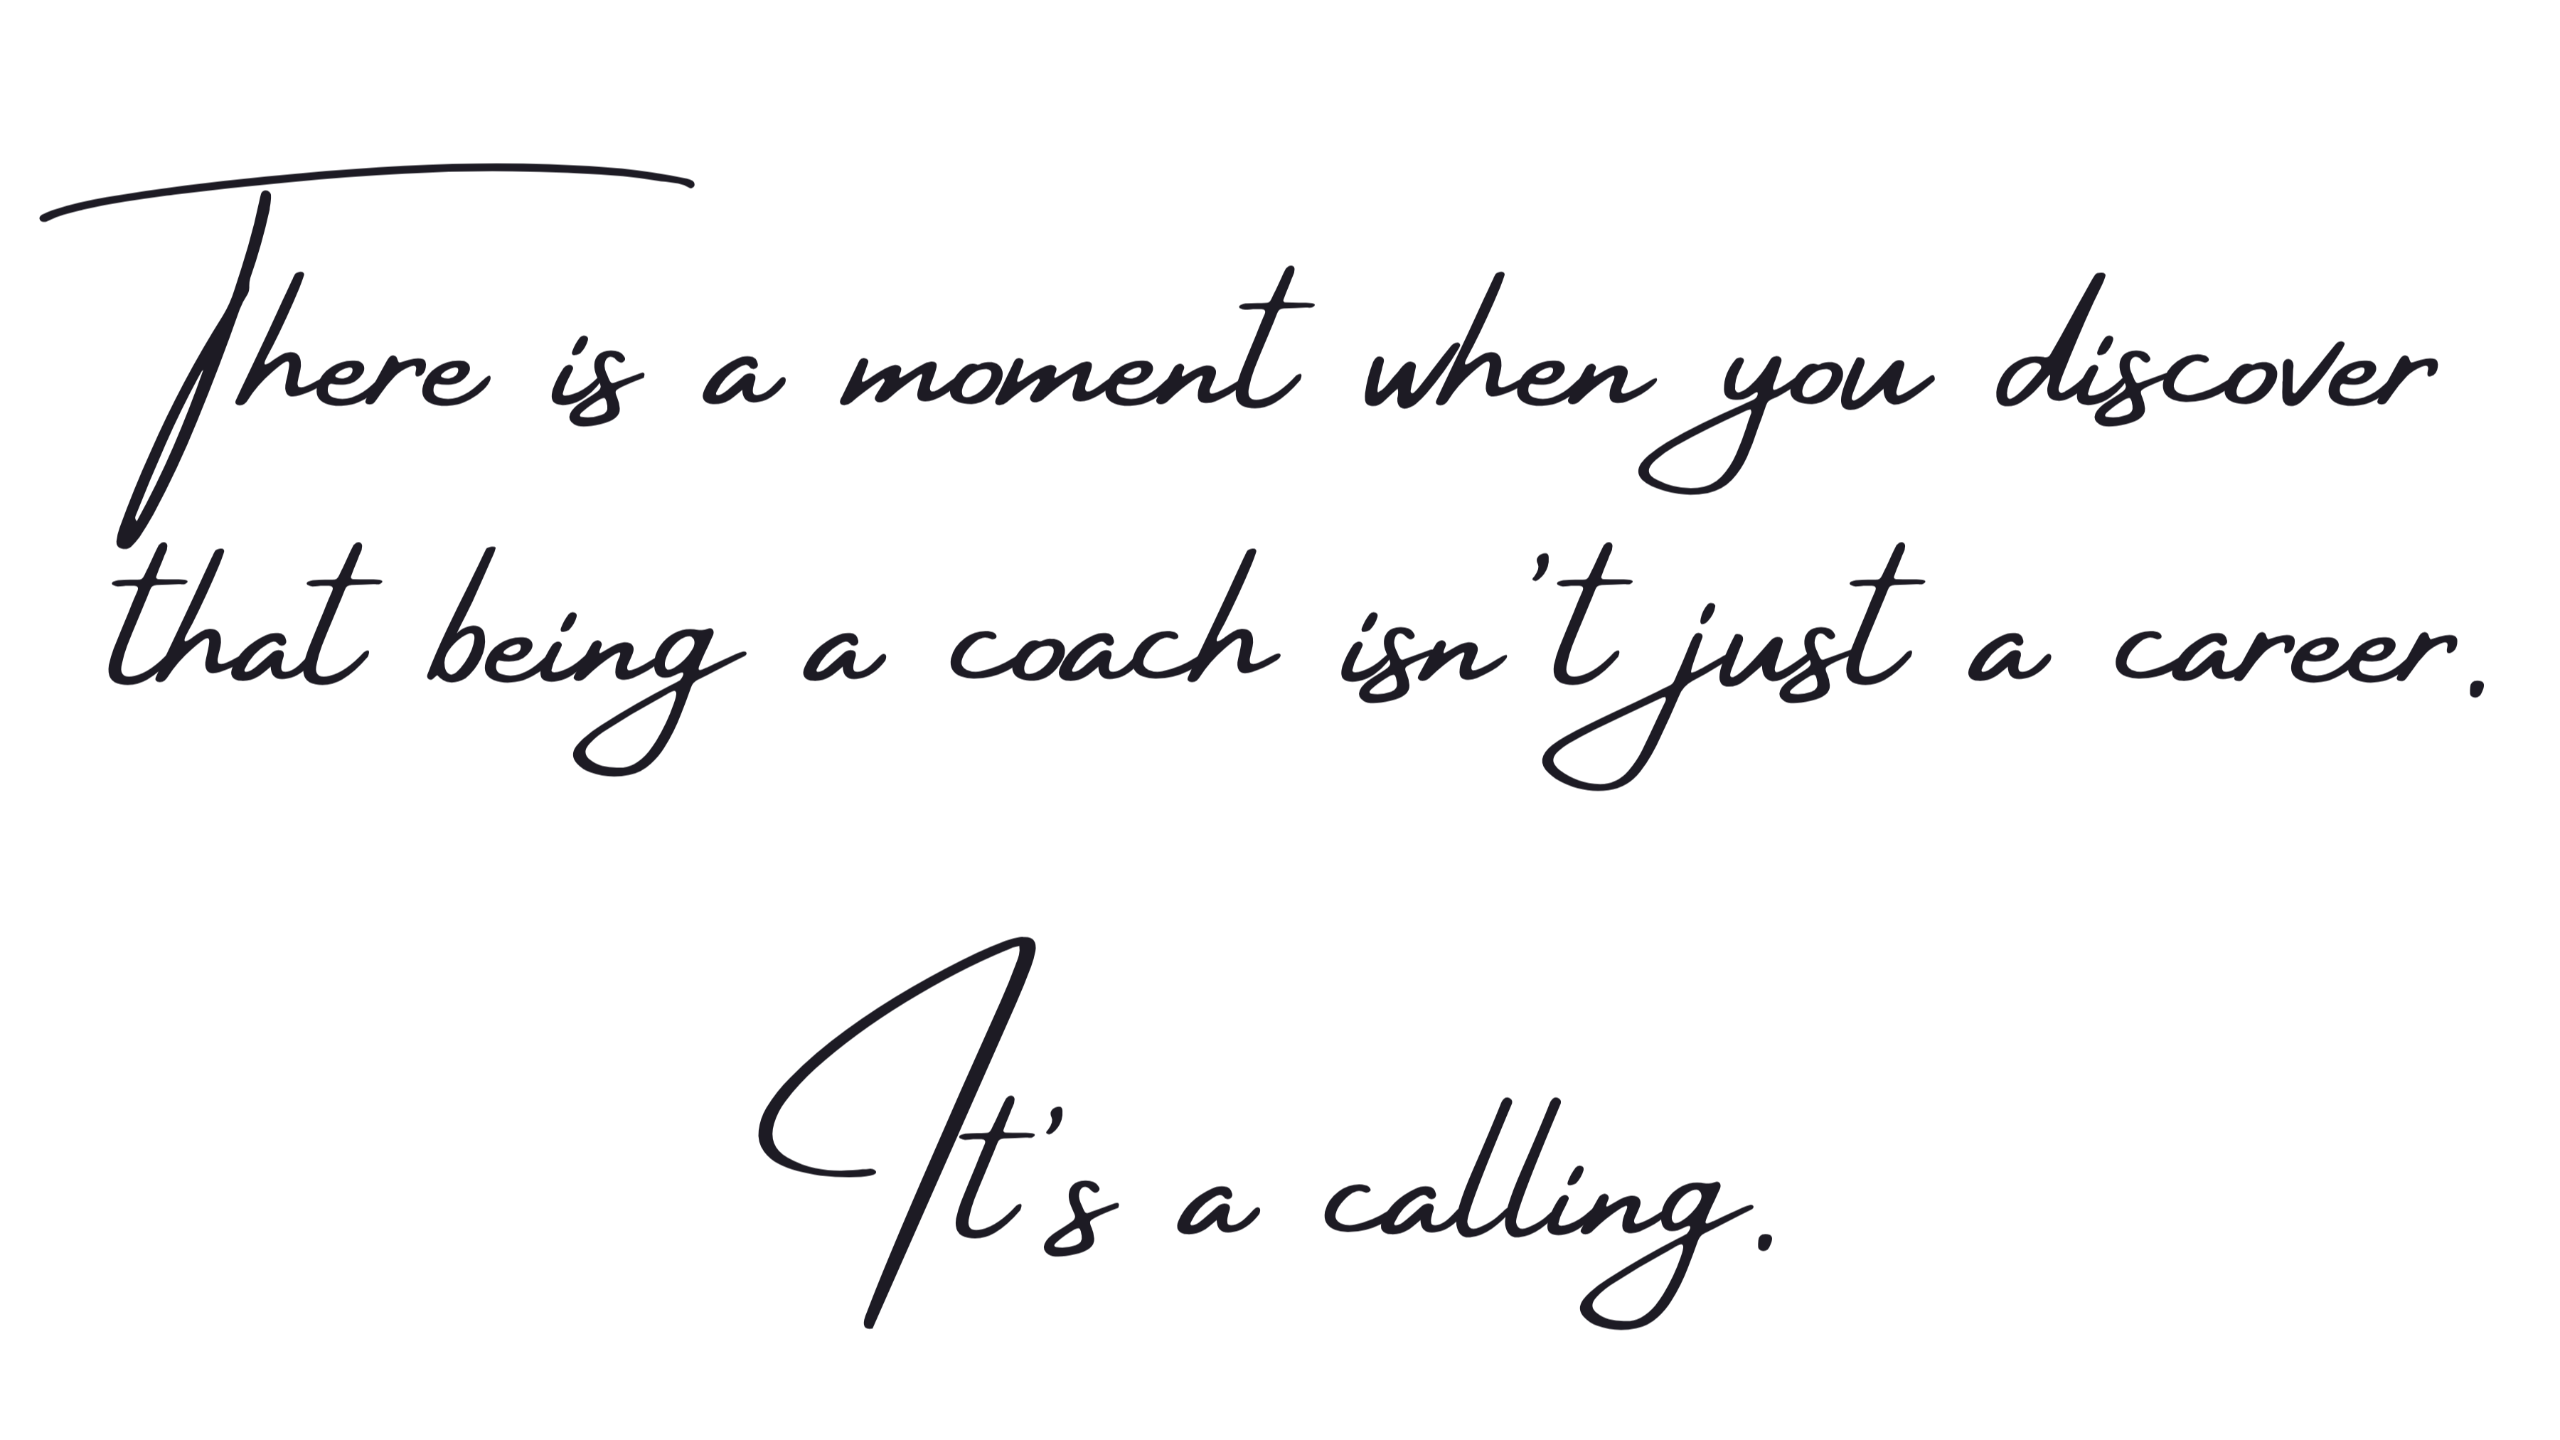 There is a moment when you discover
that being a coach isn't just a career.
It's a calling.